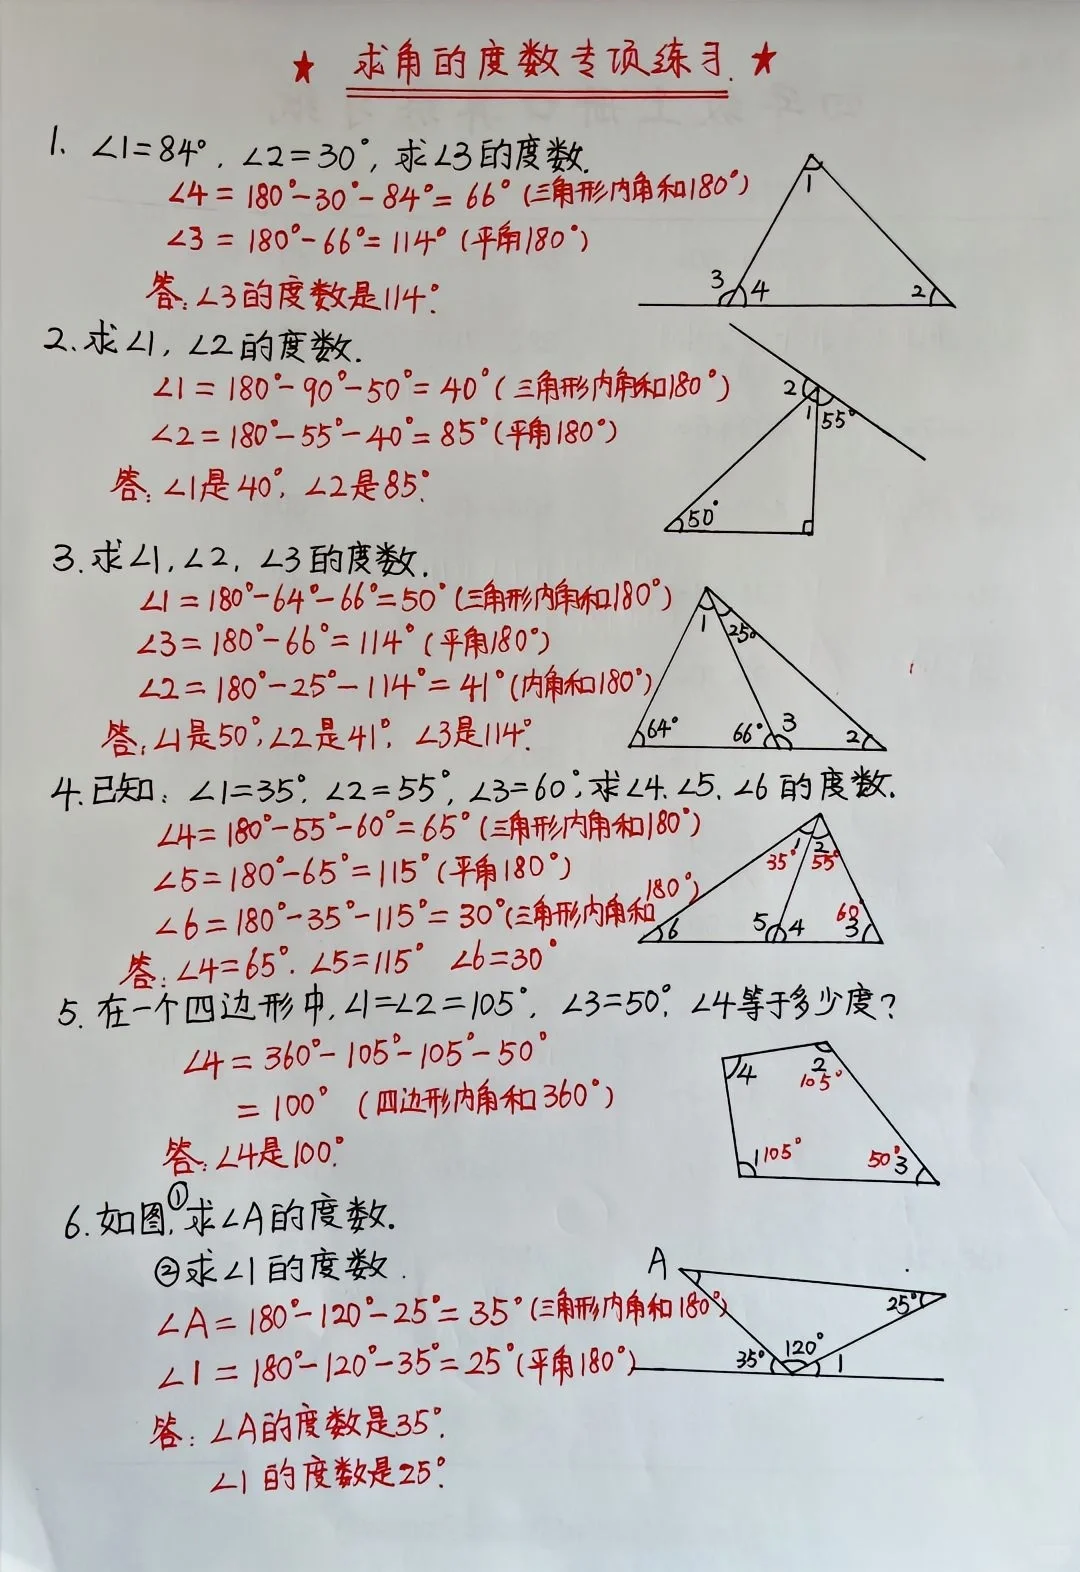 ★ 求角的度数专项练习. ★
1. ∠1=84°, ∠2=30°, 求∠3的度数.
∠4=180°-30°-84°=66°(三角形内角和180°)
∠3=180°-66°=114°(平角180°)
答:∠3的度数是114°.
1
3 4 2
2.求∠1, ∠2的度数.
∠1=180°-90°-50°=40°(三角形内角和180°)
∠2=180°-55°-40°=85°(平角180°)
答:∠1是40°, ∠2是85°.
2
1 55°
50°
3.求∠1,∠2, ∠3的度数.
∠1=180°-64°-66°=50°(三角形内角和180°)
∠3=180°-66°=114°(平角180°)
∠2=180°-25°-114°=41°(内角和180°)
答:∠1是50°,∠2是41°, ∠3是114°.
1 25°
64° 66° 3 2
4.已知: ∠1=35°, ∠2=55°, ∠3=60°,求∠4.∠5. ∠6的度数.
∠4=180°-55°-60°=65°(三角形内角和180°)
∠5=180°-65°=115°(平角180°)
∠6=180°-35°-115°=30°(三角形内角和180°)
答:∠4=65°. ∠5=115° ∠6=30°
1 2
35° 55°
60°
6 5 4 3
5.在一个四边形中,∠1=∠2=105°, ∠3=50°, ∠4等于多少度?
∠4=360°-105°-105°-50°
=100° (四边形内角和360°)
答:∠4是100°.
4 2
105°
1 105° 50° 3
6.如图,①求∠A的度数.
②求∠1的度数.
∠A=180°-120°-25°=35°(三角形内角和180°)
∠1=180°-120°-35°=25°(平角180°)
答:∠A的度数是35°.
∠1的度数是25°.
A
25°
35° 120° 1